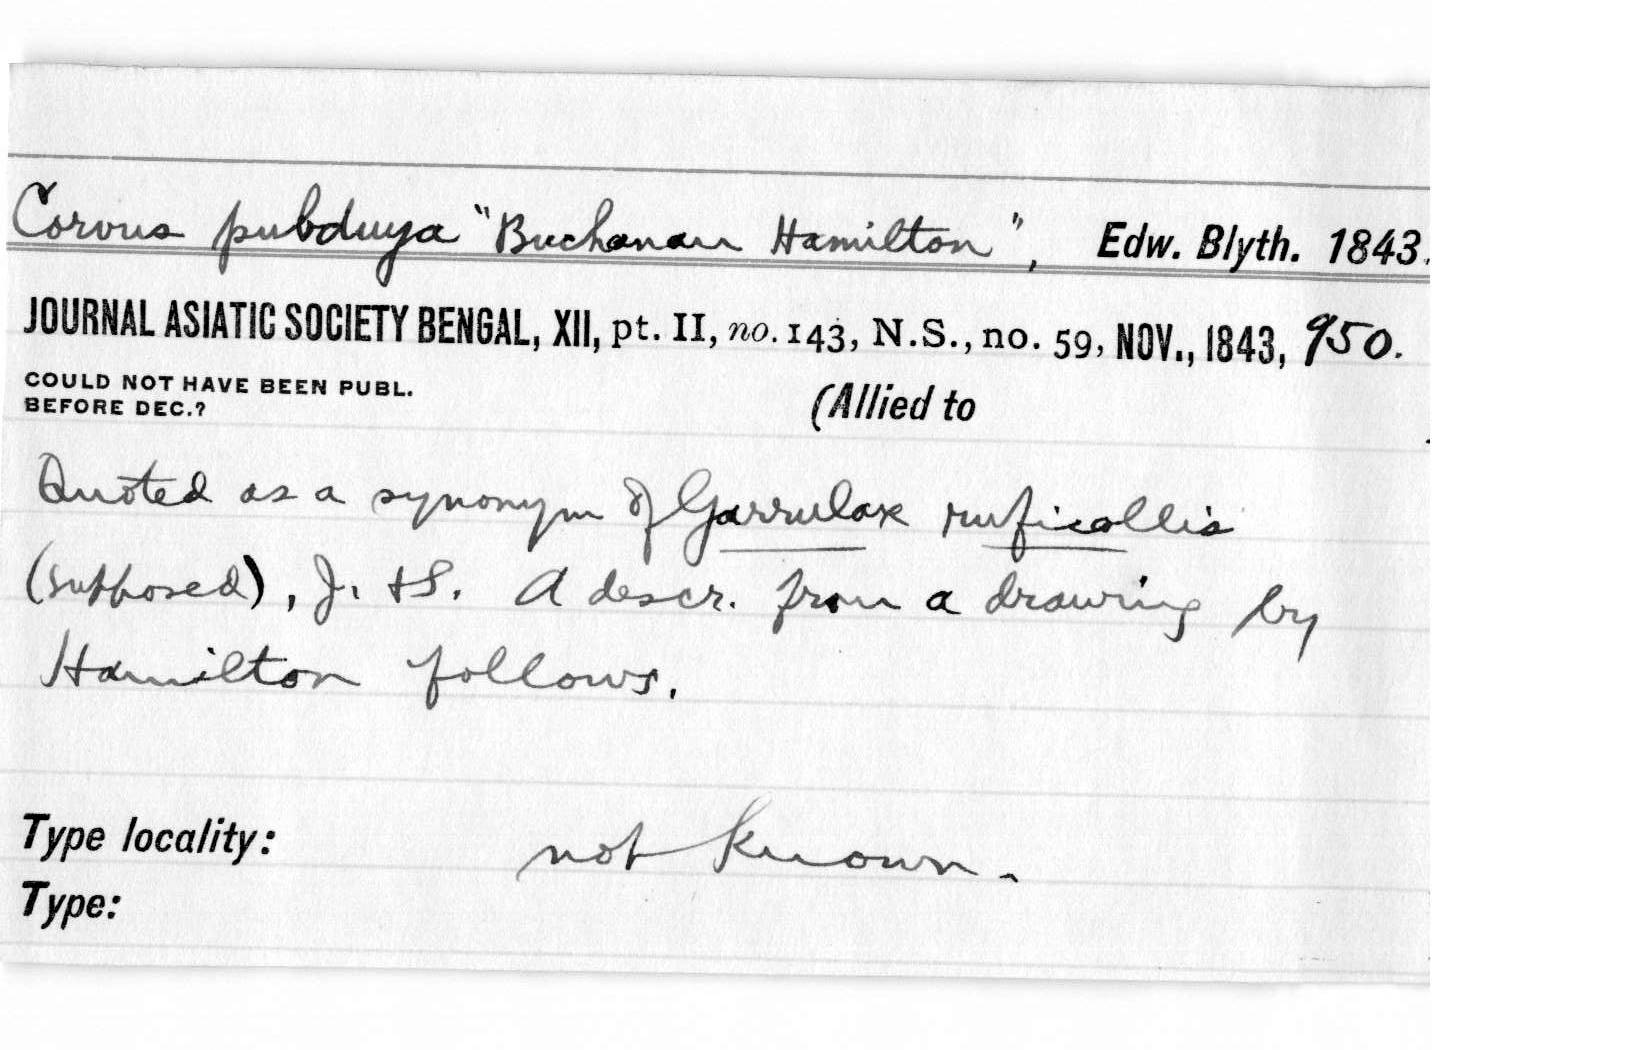 Corvus pubduya "Buchanan Hamilton", Edw. Blyth. 1843.
JOURNAL ASIATIC SOCIETY BENGAL, XII, pt. II, no. 143, N.S., no. 59, NOV., 1843, 950.
COULD NOT HAVE BEEN PUBL.
BEFORE DEC.?
(Allied to
Quoted as a synonym of Garrulax ruficollis
(supposed), J. & S. A descr. from a drawing by
Hamilton follows.
Type locality: not known.
Type: